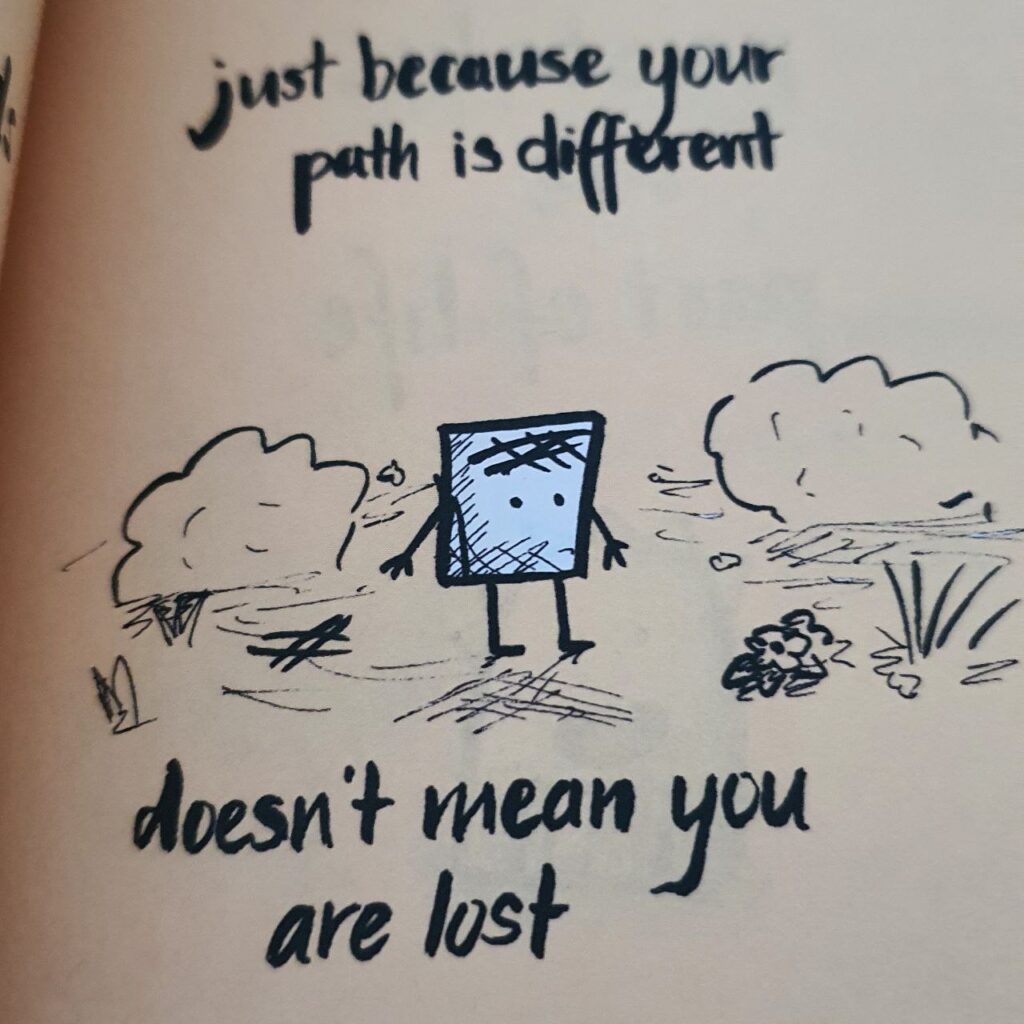 just because your
path is different
doesn't mean you
are lost